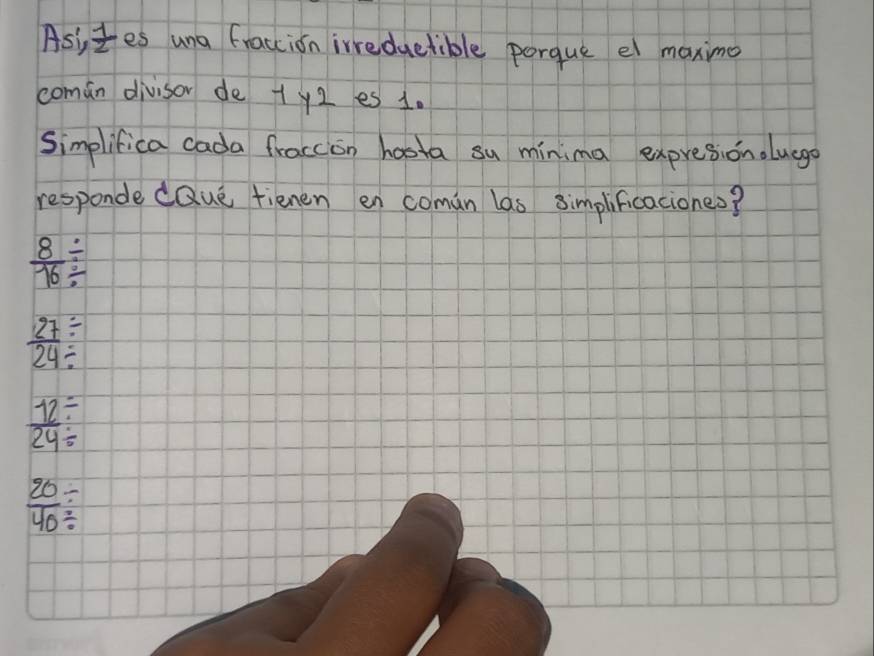 Así, 1/2 es una fracción irreductible porque el maximo
común divisor de 1 y 2 es 1.
Simplifica cada fraccion hasta su mínima expresión. Luego
responde ¿Qué tienen en común las simplificaciones?
8 ÷
16 ÷
27 ÷
24 ÷
12 ÷
24 ÷
20 ÷
40 ÷